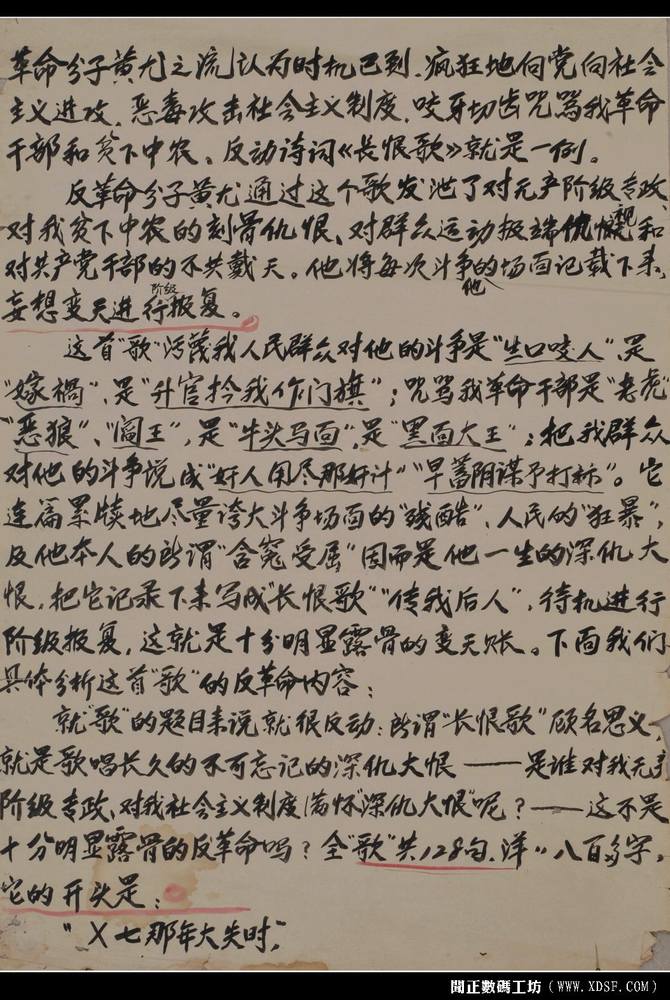 革命分子黄尤之流认为时机已到.疯狂地向党向社会
主义进攻.恶毒攻击社会主义制度.咬牙切齿咒骂我革命
干部和贫下中农、反动诗词《长恨歌》就是一例。
反革命分子黄尤通过这个歌发泄了对无产阶级专政、
对我贫下中农的刻骨仇恨、对群众运动极端仇视和
对共产党干部的不共戴天。他将每次斗争他的场面记载下来,
妄想变天进行阶级报复。
这首"歌"污蔑我人民群众对他的斗争是"生口咬人"、是
"嫁祸"、是"升官扲我作门旗"；咒骂我革命干部是"老虎"
"恶狼"、"阎王"，是"牛头马面"、是"黑面大王"；把我群众
对他的斗争说成"奸人用尽那奸计""早蓄阴谋予打标"。它
连篇累牍地尽量夸大斗争场面的"残酷"、人民的"狂暴"，
及他本人的所谓"含冤受屈"因而是他一生的深仇大
恨.把它记录下来写成"长恨歌""传我后人"，待机进行
阶级报复，这就是十分明显露骨的变天账。下面我们
具体分析这首"歌"的反革命内容：
就"歌"的题目来说就很反动：所谓"长恨歌"顾名思义，
就是歌唱长久的不可忘记的深仇大恨——是谁对我无产
阶级专政、对我社会主义制度满怀"深仇大恨"呢？——这不是
十分明显露骨的反革命吗？全"歌"共128句.洋〃八百多字，
它的开头是：
"X七那年大失时，
聞正數碼工坊（www.XDSF.com）